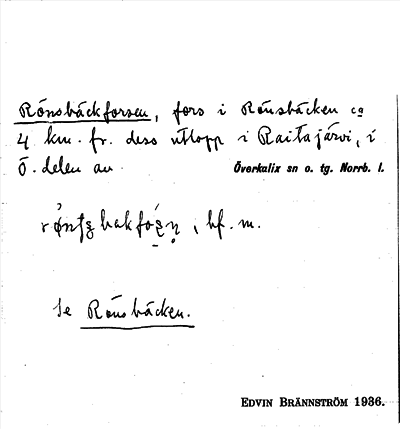 Rönsbäckforsen, fors i Rönsbäcken ca
4 km. fr. dess utlopp i Raitajärvi, i
Ö. delen av Överkalix sn o. tg. Norrb. l.
bf. m.
Se Rönsbäcken.
EDVIN BRÄNNSTRÖM 1936.